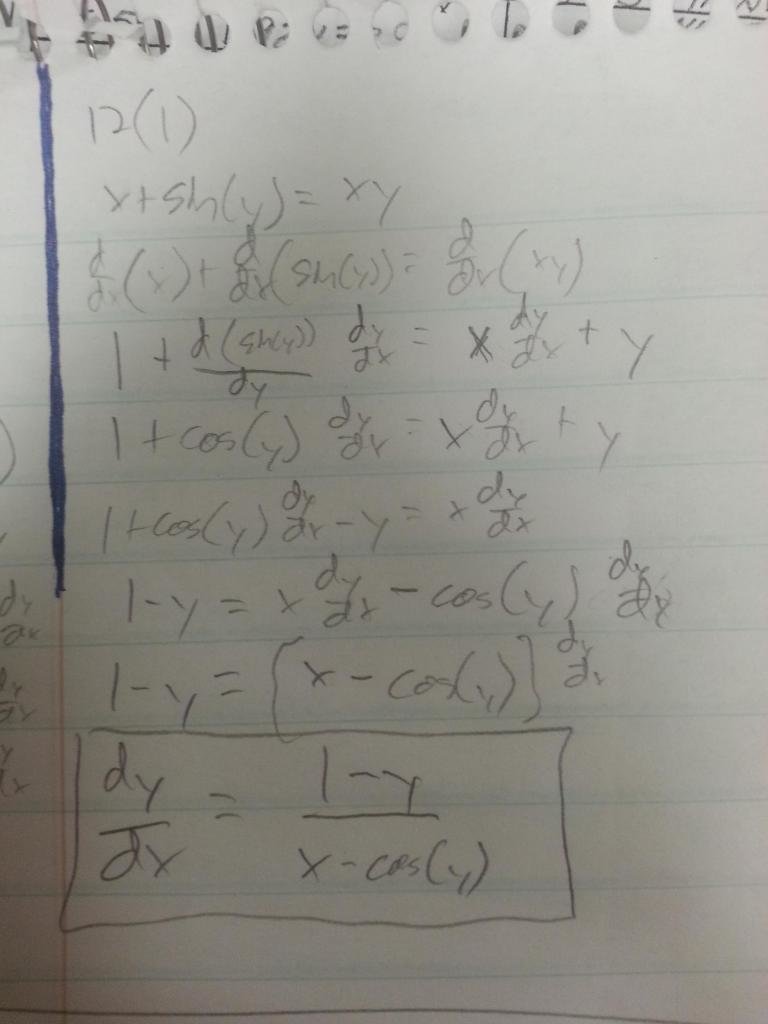 12(1)
x+sin(y)= xy
d/dx (x)+ d/dx (sin(y))= d/dx (xy)
1 + d(sin(y))/dy dy/dx = x dy/dx + y
1+cos(y) dy/dx = x dy/dx + y
1+cos(y) dy/dx - y = x dy/dx
1-y = x dy/dx - cos(y) dy/dx
1-y = [x - cos(y)] dy/dx
dy/dx = 1-y / x-cos(y)